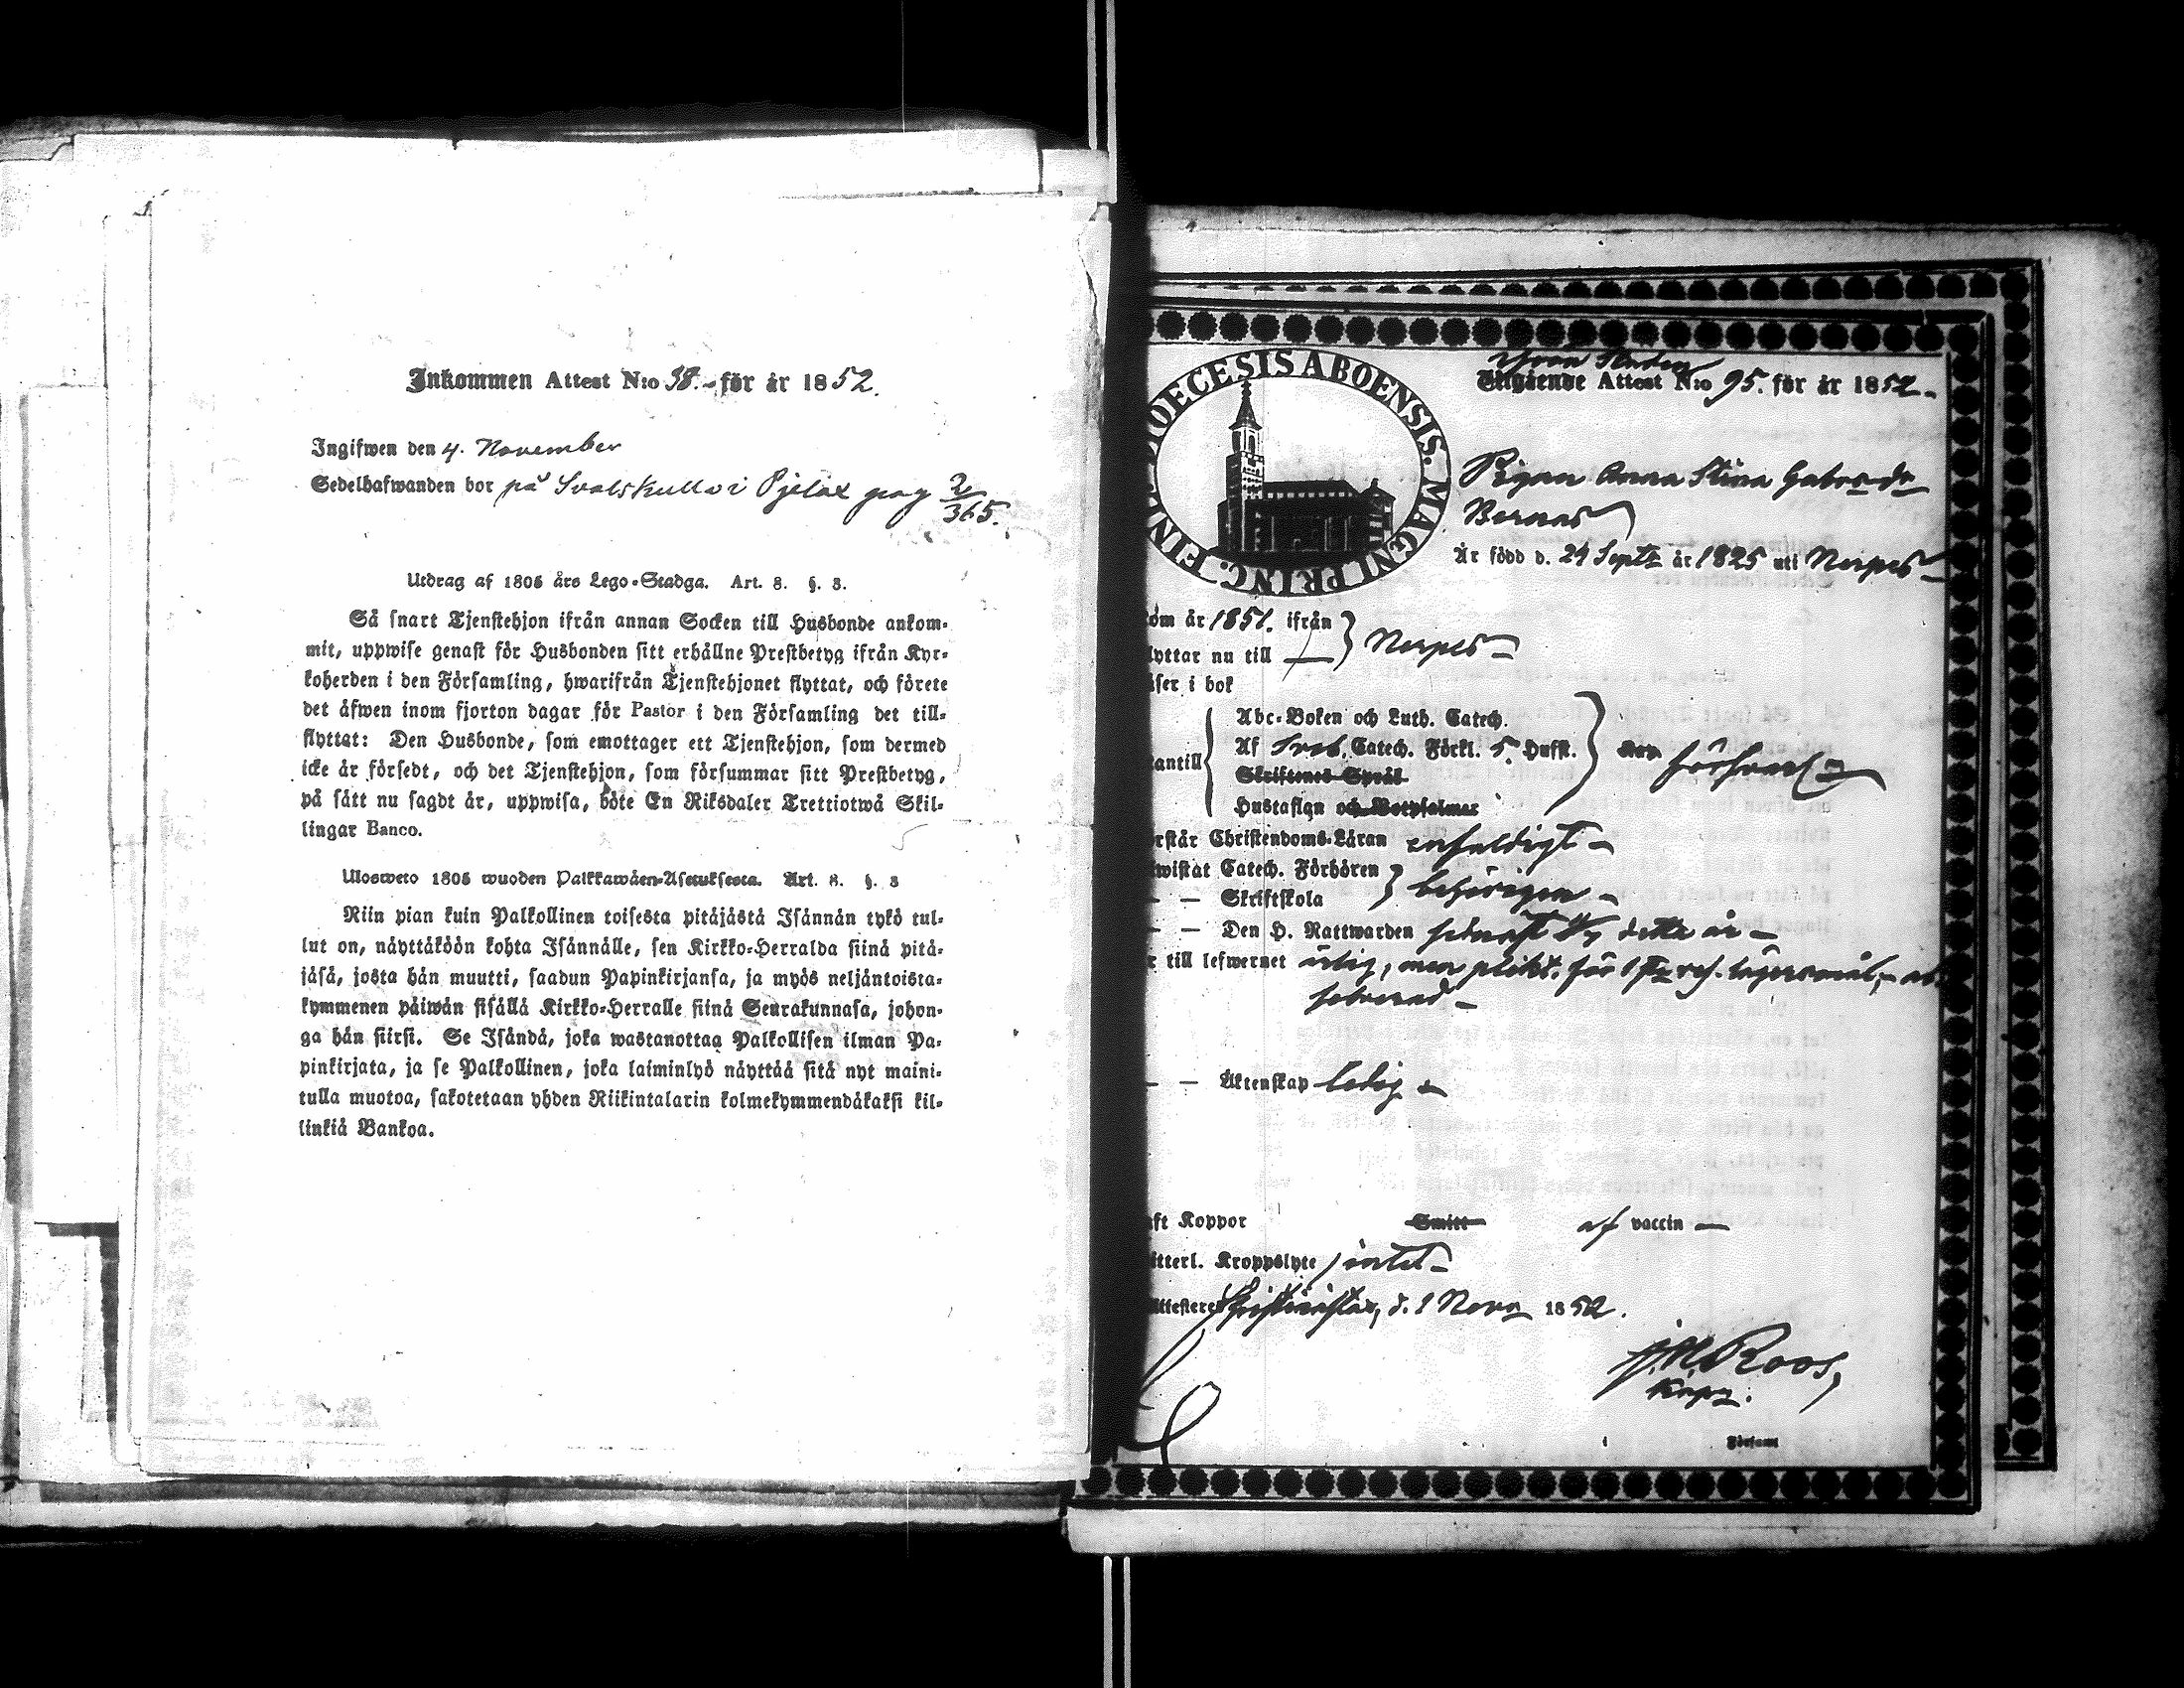 Inkommen Attest N:o 58. för år 1852.
Ingifwen den 4. November
Sedelhafwanden bor på Svalskulla i Pjelax pag 2/365.
Utdrag af 1805 års Lego-Stadga. Art. 8. §. 3.
Så snart Tjenstehjon ifrån annan Socken till Husbonde ankom-
mit, uppwise genast för Husbonden sitt erhållne Prestbetyg ifrån Kyr-
koherden i den Församling, hwarifrån Tjenstehjonet flyttat, och förete
det äfwen inom fjorton dagar för Pastor i den Församling det till-
flyttat: Den Husbonde, som emottager ett Tjenstehjon, som dermed
icke är försedt, och det Tjenstehjon, som försummar sitt Prestbetyg,
på sätt nu sagdt är, uppwisa, böte En Riksdaler Trettiotwå Skil-
lingar Banco.
Ulosweto 1805 wuoden Palkkawäen-Asetuksesta. Art. 8. §. 3
Niin pian kuin Palkollinen toisesta pitäjästä Isännän tykö tul-
lut on, näyttäköön kohta Isännälle, sen Kirkko-Herralda siinä pitä-
jäsä, josta hän muutti, saadun Papinkirjansa, ja myös neljäntoista-
kymmenen päiwän sisällä Kirkko-Herralle siinä Seurakunnasa, johon-
ga hän siirsi. Se Isändä, joka wastanottaa Palkollisen ilman Pa-
pinkirjata, ja se Palkollinen, joka laiminlyö näyttää sitä nyt maini-
tulla muotoa, sakotetaan yhden Riikintalarin kolmekymmendäkaksi kil-
linkiä Bankoa.
DIOECESIS ABOENSIS. MAGNI PRINC. FINL.
från Staden
Utgående Attest N:o 95. för år 1852
Pigan Anna Stina Gabr:s dr
Bernas
Är född d. 24 Sept: år 1825 uti Nerpes
kom år 1851. ifrån
lyttar nu till Nerpes
äser i bok
Abc-Boken och Luth. Catech.
antill Af Sveb. Catech. Förkl. 5. Hufst. försvarl.
Skriftenes Språk
Hustaflan och Botpsalmer
rstår Christendoms-Läran enfaldigt
wistat Catech. Förhören behörigen
— — Skriftskola
— — Den H. Nattwarden sednast detta år
r till lefwernet ärlig, men plikt. för 1 resp. lägersmål, ab-
solverad
— — Äktenskap ledig
aft Koppor Smitt af vaccin
itterl. Kroppslyte intet
Attesterer Christinestad, d. 1 Nov. 1852.
J. M. Roos,
Kapn.
i Församl